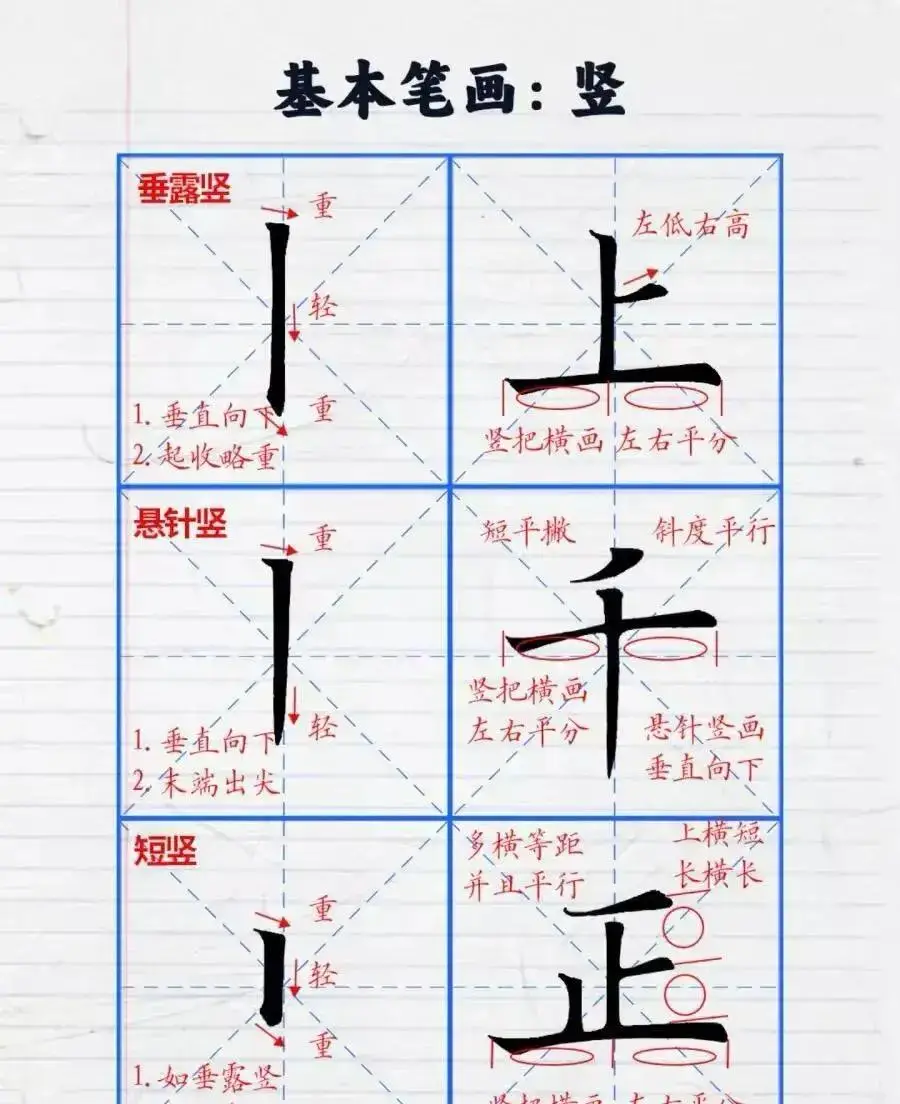 基本笔画：竖
垂露竖
重
轻
重
1. 垂直向下
2. 起收略重
上
左低右高
竖把横画 左右平分
悬针竖
重
轻
1. 垂直向下
2. 末端出尖
短平撇
斜度平行
千
竖把横画
左右平分
悬针竖画
垂直向下
短竖
重
轻
重
1. 如垂露竖
多横等距
并且平行
上横短
长横长
正
竖把横画 左右平分